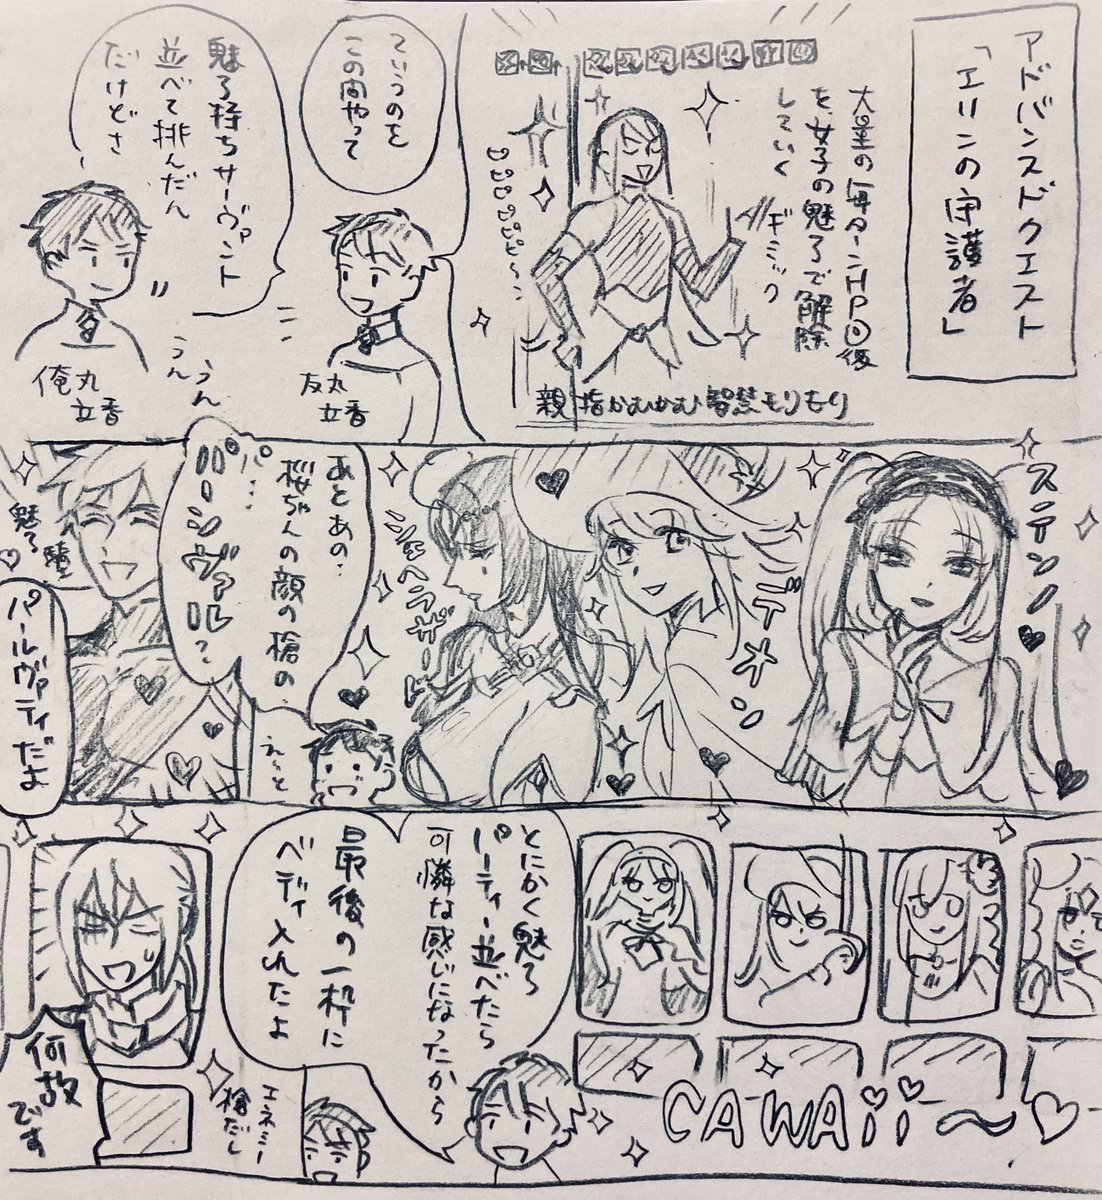 アドバンスドクエスト
「エリンの守護者」
大量の毎ターンHP回復
を、女子の魅了で解除
していく
ギミック
ピピピピピピ〜
親指かむかむ智慧もりもり
ていうのを
この間やって
友丸
立香
魅了持ちサーヴァント
並べて挑んだん
だけどさ
うん
うん
俺丸
立香
ステンノ
デオン
シェヘラザード
あとあの、
桜ちゃんの顔の槍の…
え〜と
パ…
パーシヴァル?
魅了
パールヴァティだよ
CAWAii〜
とにかく魅了
パーティー並べたら
可憐な感じになったから
最後の一枠に
ベディ入れたよ
エネミー
槍だし
何故
です